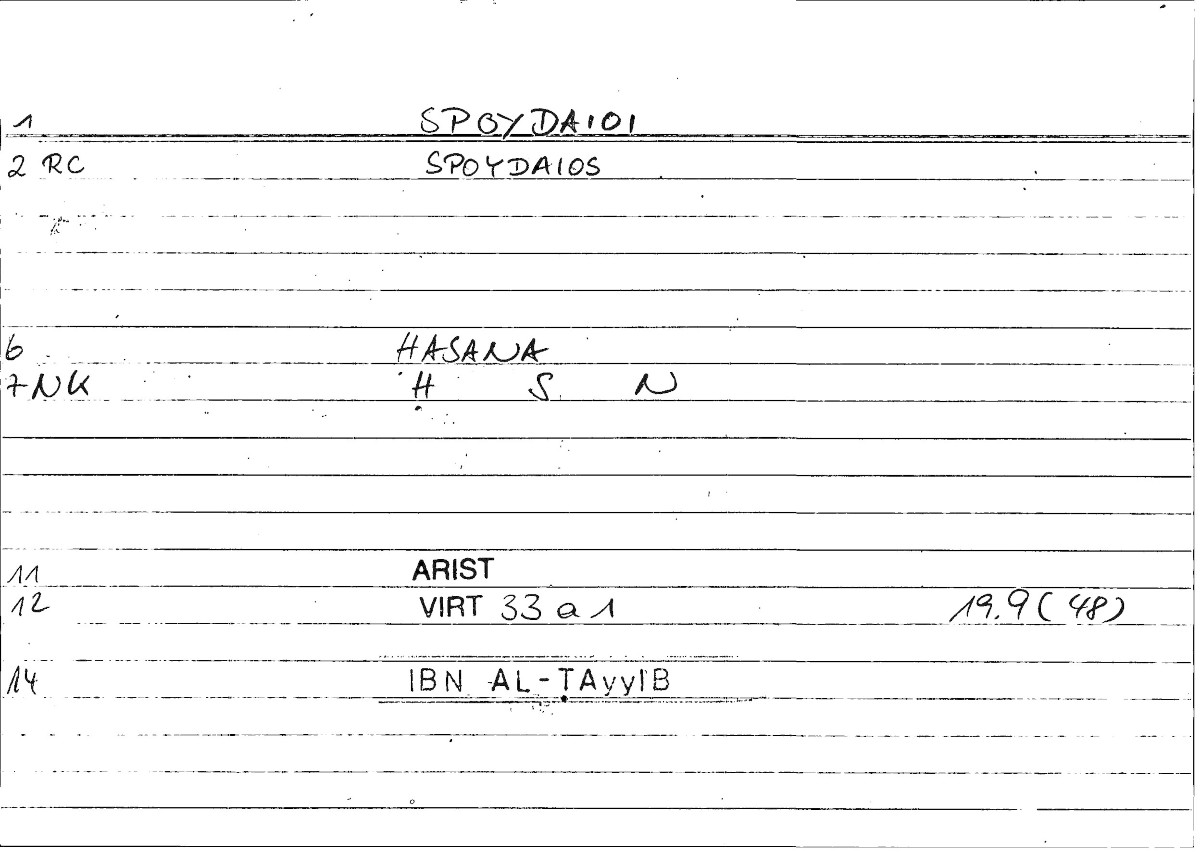 1 SPOYDAIOI
2 RC SPOYDAIOS
6 HASANA
7 NK Ḥ S N
11 ARIST
12 VIRT 33 a 1 19.9 (48)
14 IBN AL-ṬAyyIB